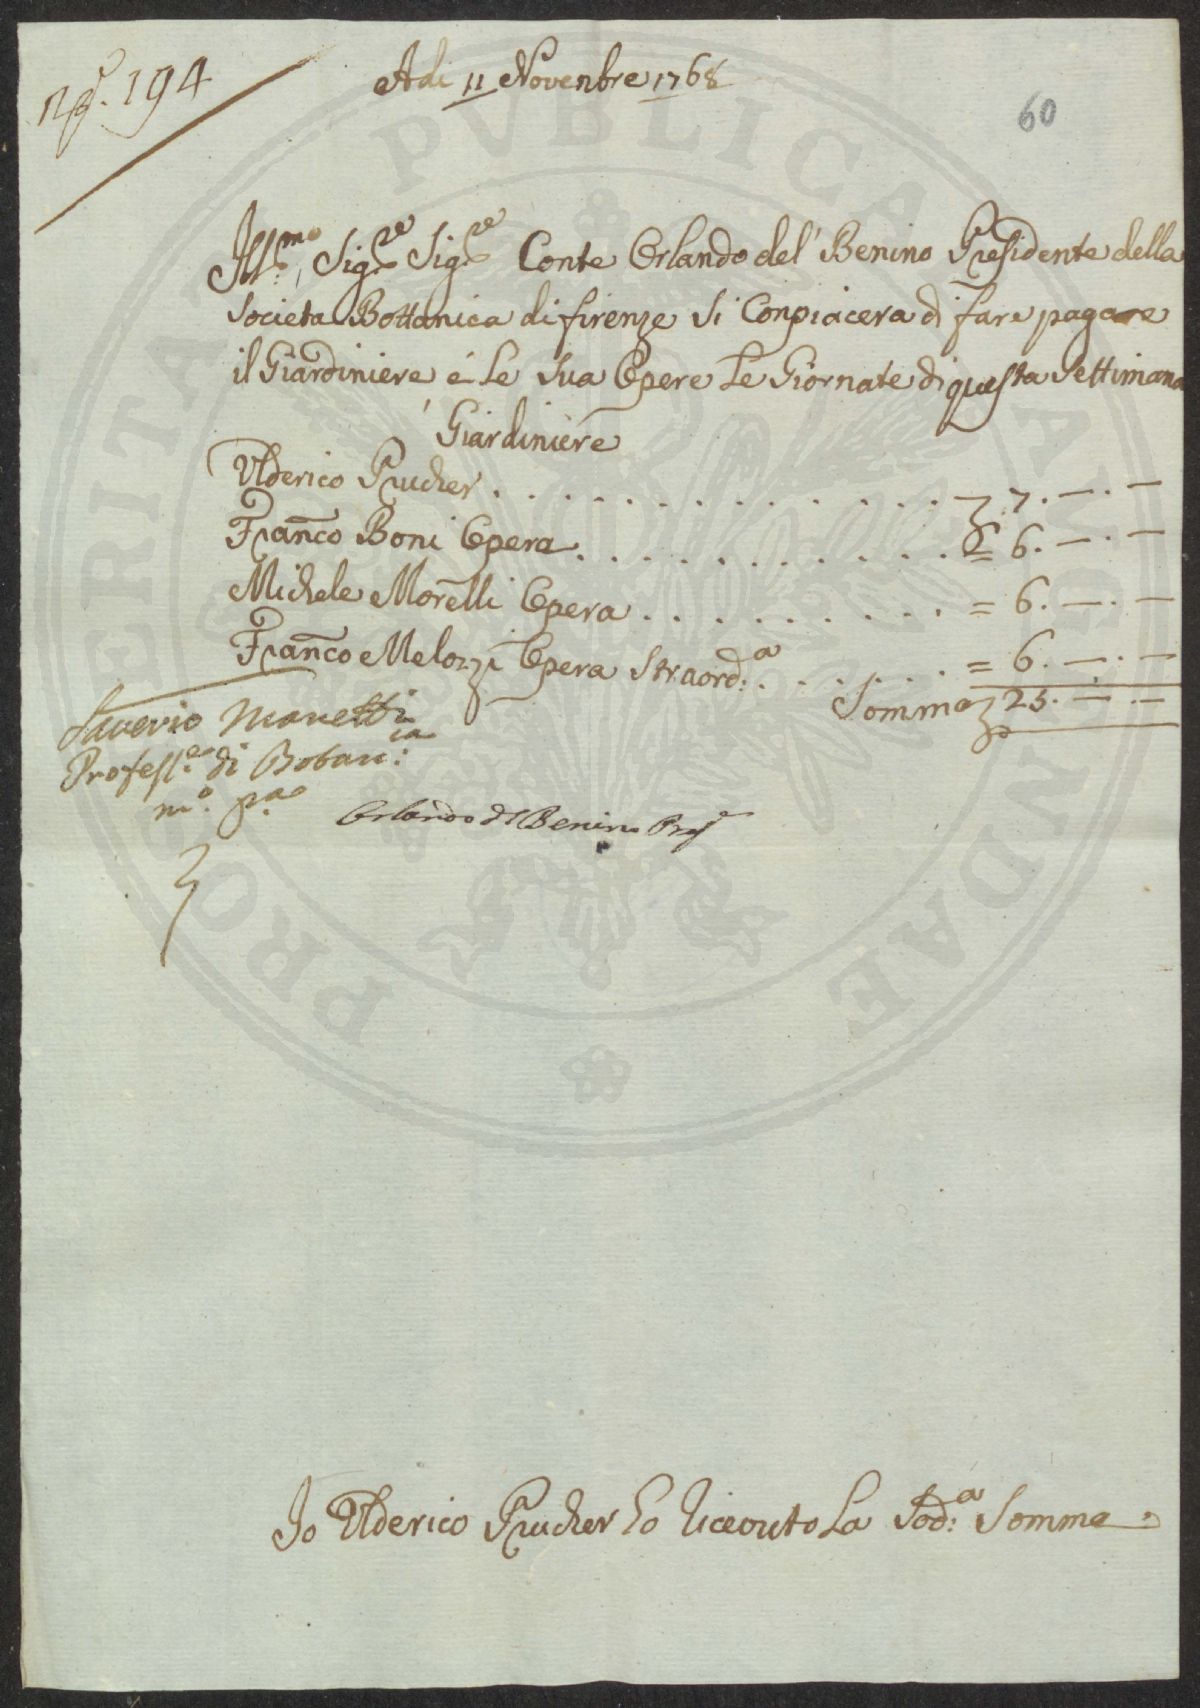 N.º 194
Adi 11 Novenbre 1768
60
Ill.mo Sig.re Sig.re Conte Orlando del' Benino Presidente della
Societa Bottanica di firenze si Conpiacera di fare pagare
il Giardiniere é Le sua Opere Le Giornate di questa Settimana
Giardiniere
Ulderico Prucher . . . . . . . . . . . . . . 7. —. —
Fran̄co Boni Opera . . . . . . . . . . . = 6. —. —
Michele Morelli Opera . . . . . . . . . . = 6. —. —
Fran̄co Melozzi Opera Straord:a . . . . . . = 6. —. —
Somma 25. — —
Saverio Manetti
Profess.e di Botan:ca
m.o p.a
Orlando del Benino Pres.e
Io Ulderico Prucher ho riceouto La Sod:a Somma
PRO SPERITATI PVBLICAE AVGENDAE